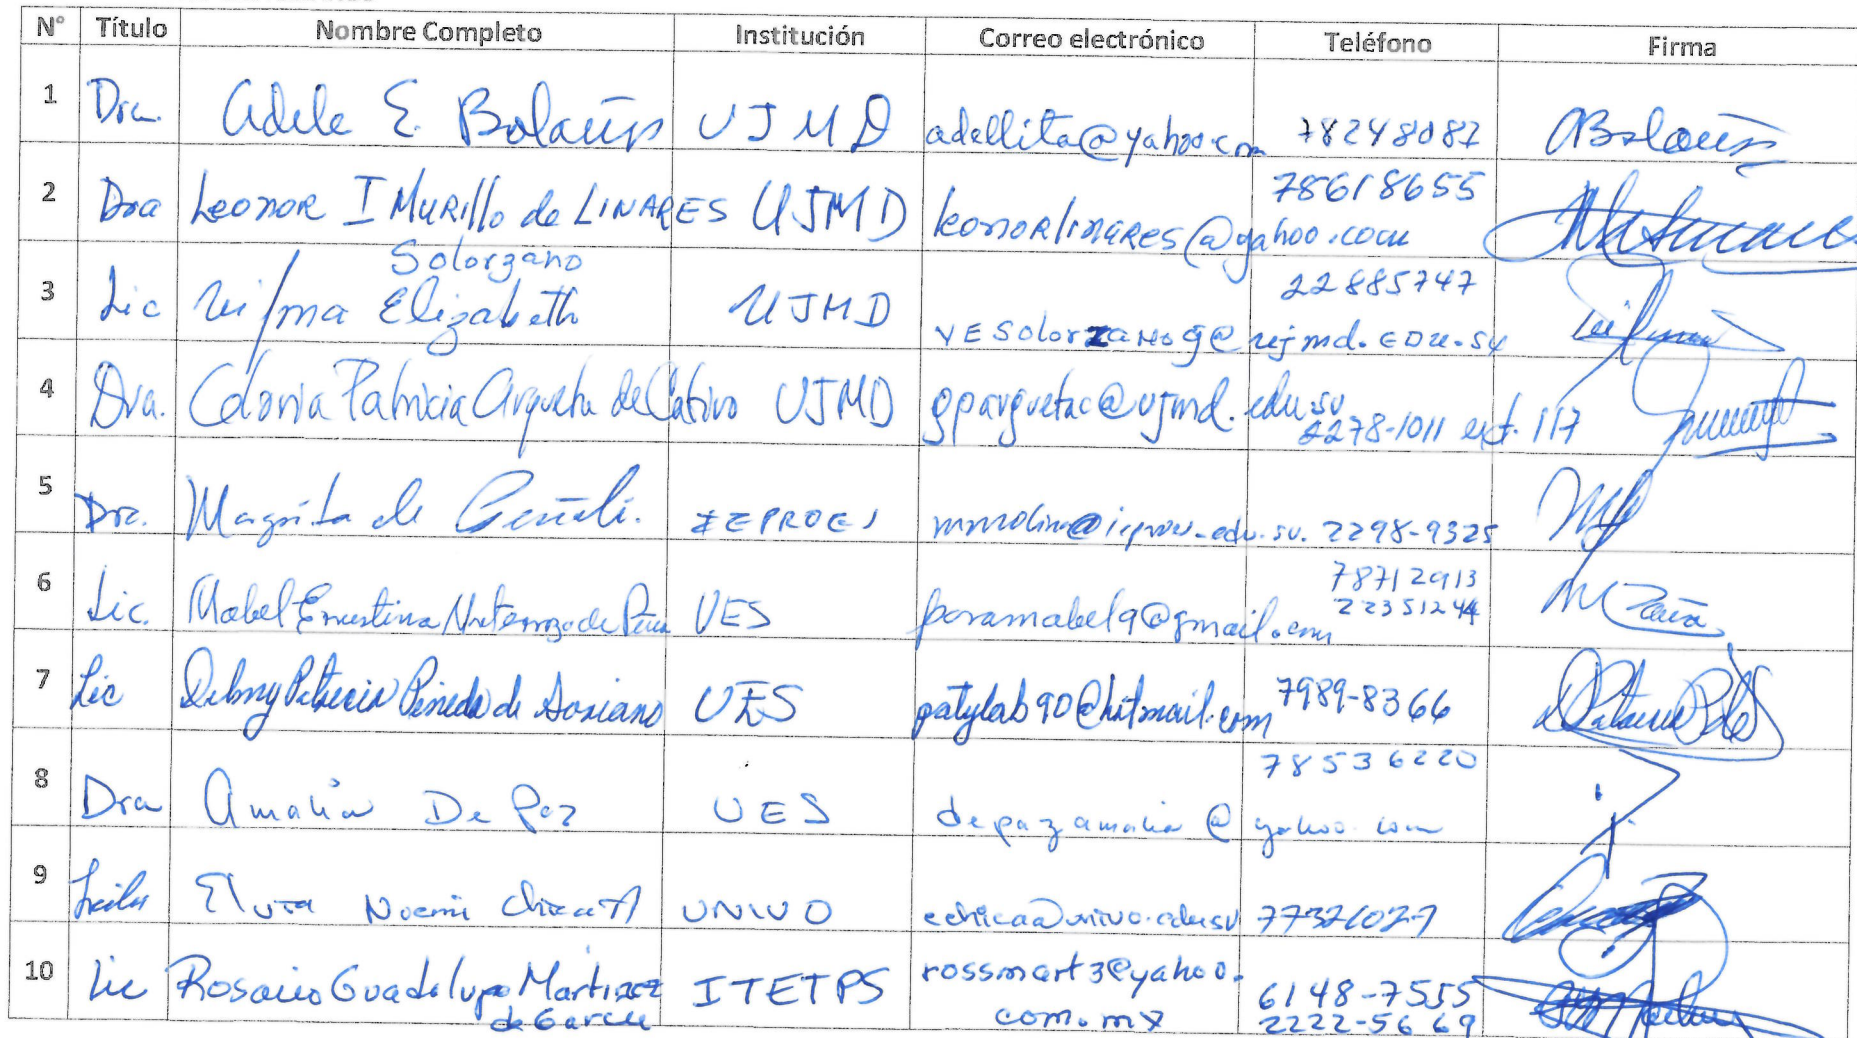 N° Título Nombre Completo Institución Correo electrónico Teléfono Firma
1 Dra. Adele E. Bolaños UJMD adellita@yahoo.com 78248082
2 Dra Leonor I Murillo de LINARES UJMD leonorlinares@yahoo.com 78618655
3 Lic Vilma Elizabeth Solorzano UJMD VESolorzanog@ujmd.EDU.SV 22885747
4 Dra. Patricia Argueta de Cativo UJMD gparguetac@ujmd.edu.sv 2278-1011 ext. 117
5 Dra. de IEPROES 2298-9325
6 Lic. Mabel Ernestina de UES @gmail.com 78712913
22351244
7 Lic Delmy Patricia Pineda de Soriano UES patylab90@hotmail.com 7989-8366
8 Dra Amalia De Paz UES depazamalia@yahoo.com 78536220
9 Noemi UNIVO echicaa@univo.edu.sv
10 Lic Rosario Guadalupe Martinez ITETPS rossmart3@yahoo. 6148-7555
de Garcia com.mx 2222-5669